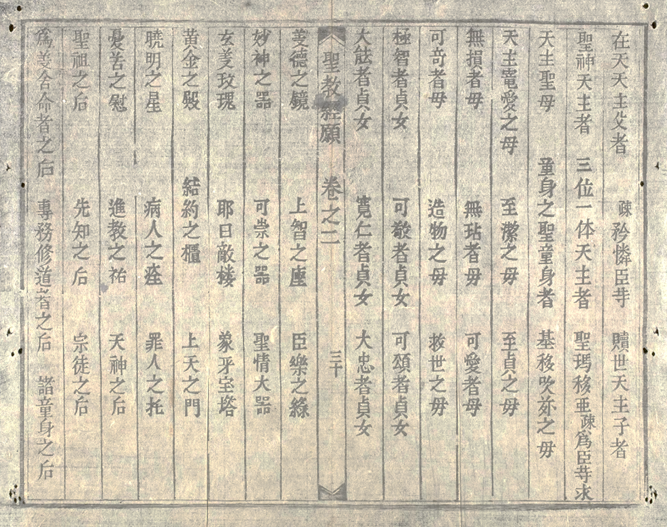 在天天主父者 疎矜憐臣等 贖世天主子者
聖神天主者 三位一体天主者 聖瑪移亜疎爲臣等求
天主聖母 童身之聖童身者 基移吹尓之母
天主寵愛之毋 至潔之毋 至貞之毋
無損者毋 無玷者毋 可愛者毋
可奇者毋 造物之毋 救世之毋
極智者貞女 可敬者貞女 可頌者貞女
大能者貞女 寛仁者貞女 大忠者貞女
聖教經願 卷之二 三十
義德之鏡 上智之座 臣樂之緣
妙神之器 可崇之器 聖情大器
玄義玫瑰 耶曰敵楼 象牙宝塔
黄金之殿 結約之櫃 上天之門
曉明之星 病人之痊 罪人之托
憂苦之慰 進教之祐 天神之后
聖祖之后 先知之后 宗徒之后
爲義舍命者之后 專務修道者之后 諸童身之后